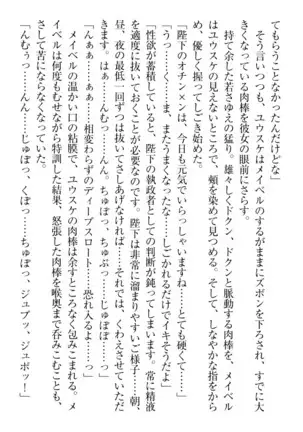 てもらうことになったんだけどな」
そう言いつつも、ユウスケはメイベルのするがままにズボンを下ろされ、すでに大
きくなっている肉棒を彼女の眼前にさらす。
持て余した若さゆえの猛り。雄々しくドクン、ドクンと脈動する肉棒を、メイベル
はユウスケの見えないところで、頬を染めて見つめる。そして、しなやかな指をから
め、優しく握ってしごき始めた。
「陛下のオチン××ンは、今日も元気でいらっしゃいますね……とても硬くて……」
「おっ……く……ま、またうまくなったな……しごかれるだけでイキそうだよ」
「性欲が蓄積していると、陛下の執政者としての判断が鈍ってしまいます。常に精液
を適度に抜いておくことが必要なのです。陛下は非常に溜まりやすいご様子……朝、
昼、夜の最低一回ずつは抜いてさしあげなければ……それでは、くわえさせていただ
きます。はぁ……んむっ……ん……ちゅぼっ、ちゅぷっ……じゅぼぼっ……」
「んぁぁ……ぁぁ……相変わらずのディープスロート……恐れ入るよ……っ」
メイベルの温かい口の粘膜で、ユウスケの肉棒は余すところなく包みこまれる。メ
イベルは何度もむせながら特訓した結果、怒張した肉棒を喉奥まで呑みこむことも、
さして苦にならなくなっていた。
「んむぅっ……んんっ……じゅぽっ、くぼっ……ちゅぼっ、ジュブッ、ジュボッ！」